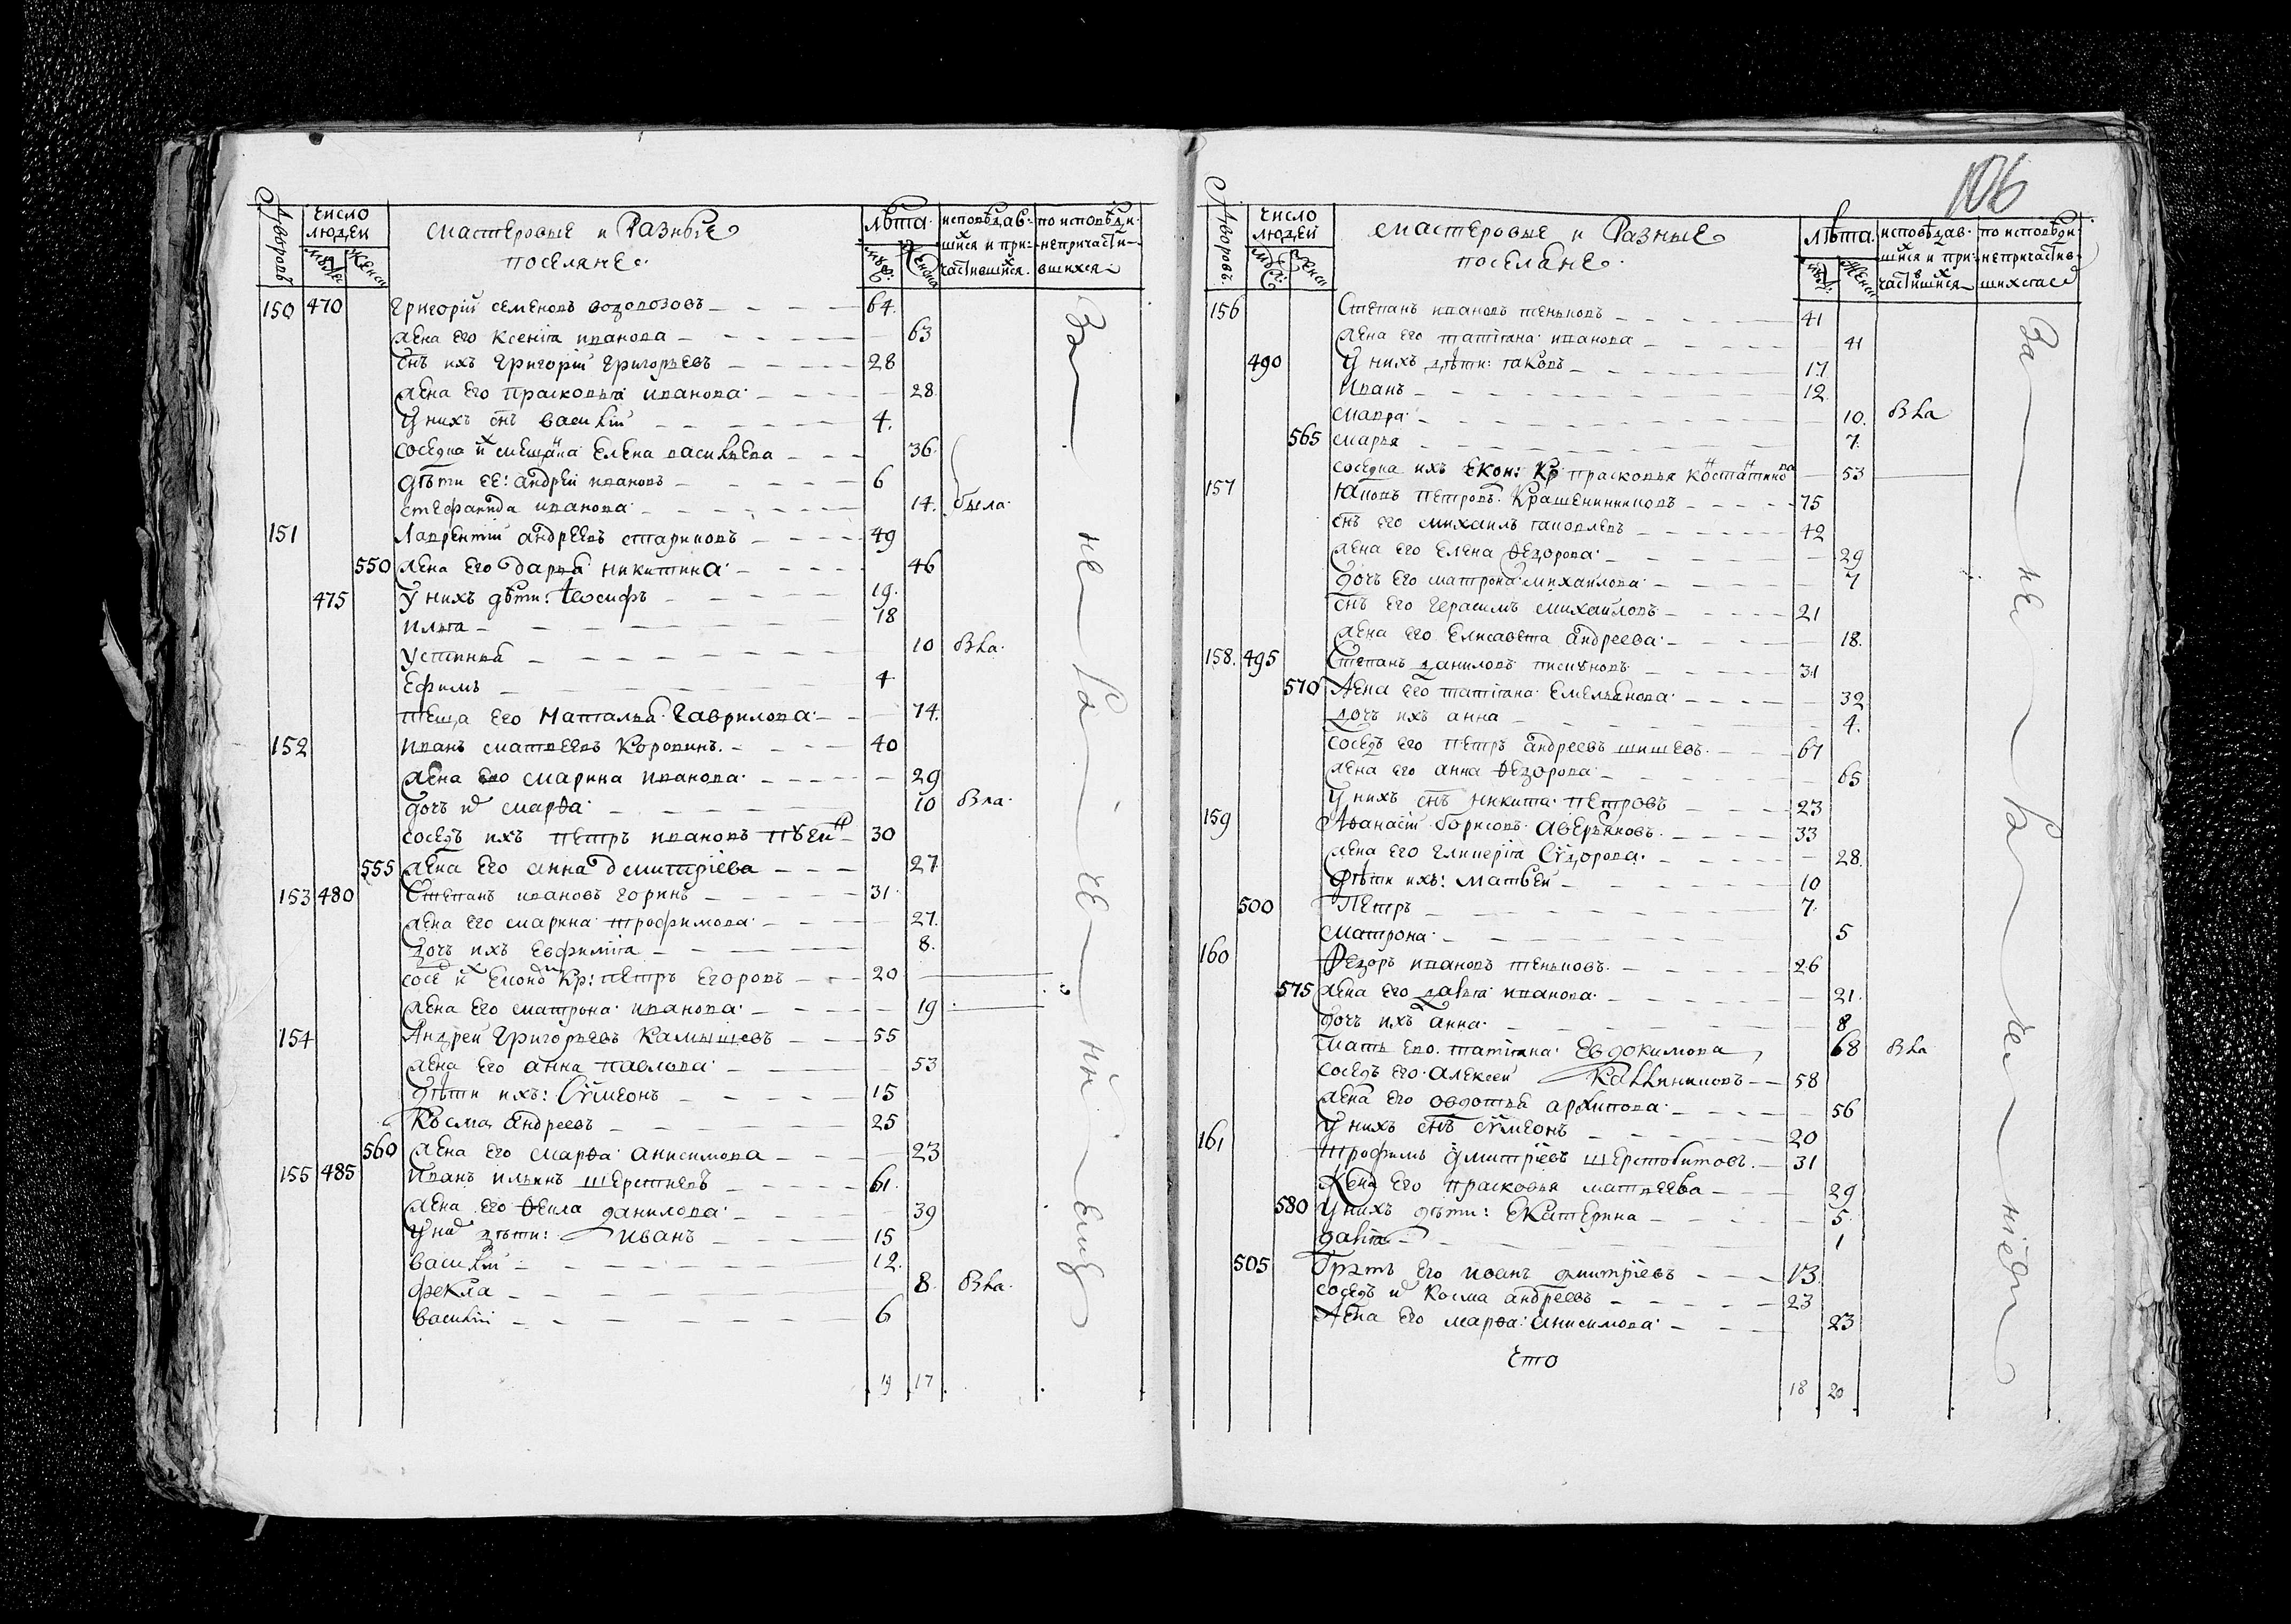 106
Дворовъ
число людей
мастеровые и Разные
поселяне
лѣта
исповѣдав-
шихся и при-
частившихся
по исповѣди
непричасти-
вшихся
150 470 Григорій семеновъ водовозовъ 64
жена его ксенія иванова 63
снъ ихъ Григорій Григорьевъ 28
жена его прасковья иванова 28
У нихъ снъ василій 4
соседка их мещанка Елена васильева 36
дѣти ее: андрей ивановъ 6
стефанида иванова 14 была
151 Лаврентій андреевъ стариковъ 49
550 жена его дарья никитина 46
475 У нихъ дѣти: іосифъ 19
илья 18
устинья 10 Бла
Ефимъ 4
теща его Наталья Гаврилова 74
152 иванъ матвеевъ Коровинъ 40
жена его марина иванова 29
дочь их марѳа 10 Бла
соседъ ихъ петръ ивановъ 30
555 жена его анна дмитріева 27
153 480 Степанъ ивановъ горинъ 31
жена его марина трофимова 27
дочь ихъ евфимія 8
сосе их Еконо Кр: петръ Егоровъ 20
жена его матрона иванова 19
154 Андрей Григорьевъ Камышевъ 55
жена его анна павлова 53
дѣти ихъ: Сѵмеонъ 15
Косма андреевъ 25
560 жена его марѳа анисимова 23
155 485 иванъ ильинъ шерстневъ 61
жена его ѳекла данилова 39
У них дѣти: иванъ 15
василій 12
фекла 8 Бла
василій 6
19 17
За не
Дворовъ
число людей
мастеровые и Разные
поселяне
лѣта
исповѣдав-
шихся и при-
частившихся
по исповѣди
непричастив-
шихся
156 Степанъ ивановъ теньковъ 41
жена его татіана иванова 41
490 У нихъ дѣти: іаковъ 17
иванъ 12
мавра 10 Бла
565 марья 7
соседка ихъ Екон: Кр прасковья костантинова 53
157 іаковъ петровъ Крашенинниковъ 75
снъ его михаилъ іаковлевъ 42
жена его елена ѳедорова 29
дочь его матрона михаилова 7
снъ его герасимъ михаиловъ 21
жена его елисавета андреева 18
158 495 Степанъ даниловъ 31
570 жена его татіана емельянова 32
дочь ихъ анна 4
соседъ его петръ андреевъ шишевъ 67
жена его анна ѳедорова 65
У нихъ снъ никита петровъ 23
159 Аѳанасій борисовъ аверьяновъ 33
жена его гликерія Сѵдорова 28
дѣти ихъ: матвей 10
500 Петръ 7
матрона 5
160 Ѳедоръ ивановъ теньковъ 26
575 жена его дарья иванова 21
дочь ихъ анна 8
мать его татіана Евдокимова 68 Бла
соседъ его алексей Калинниковъ 58
жена его овдотья архипова 56
У нихъ снъ сѵмеонъ 20
161 трофимъ дмитріевъ шерстобитовъ 31
Жена его прасковья матвеева 29
580 У нихъ дѣти: екатерина 5
дарія 1
505 Братъ его иванъ дмитріевъ 13
соседъ их Косма андреевъ 23
Жена его марѳа анисимова 23
Что
18 20
За не